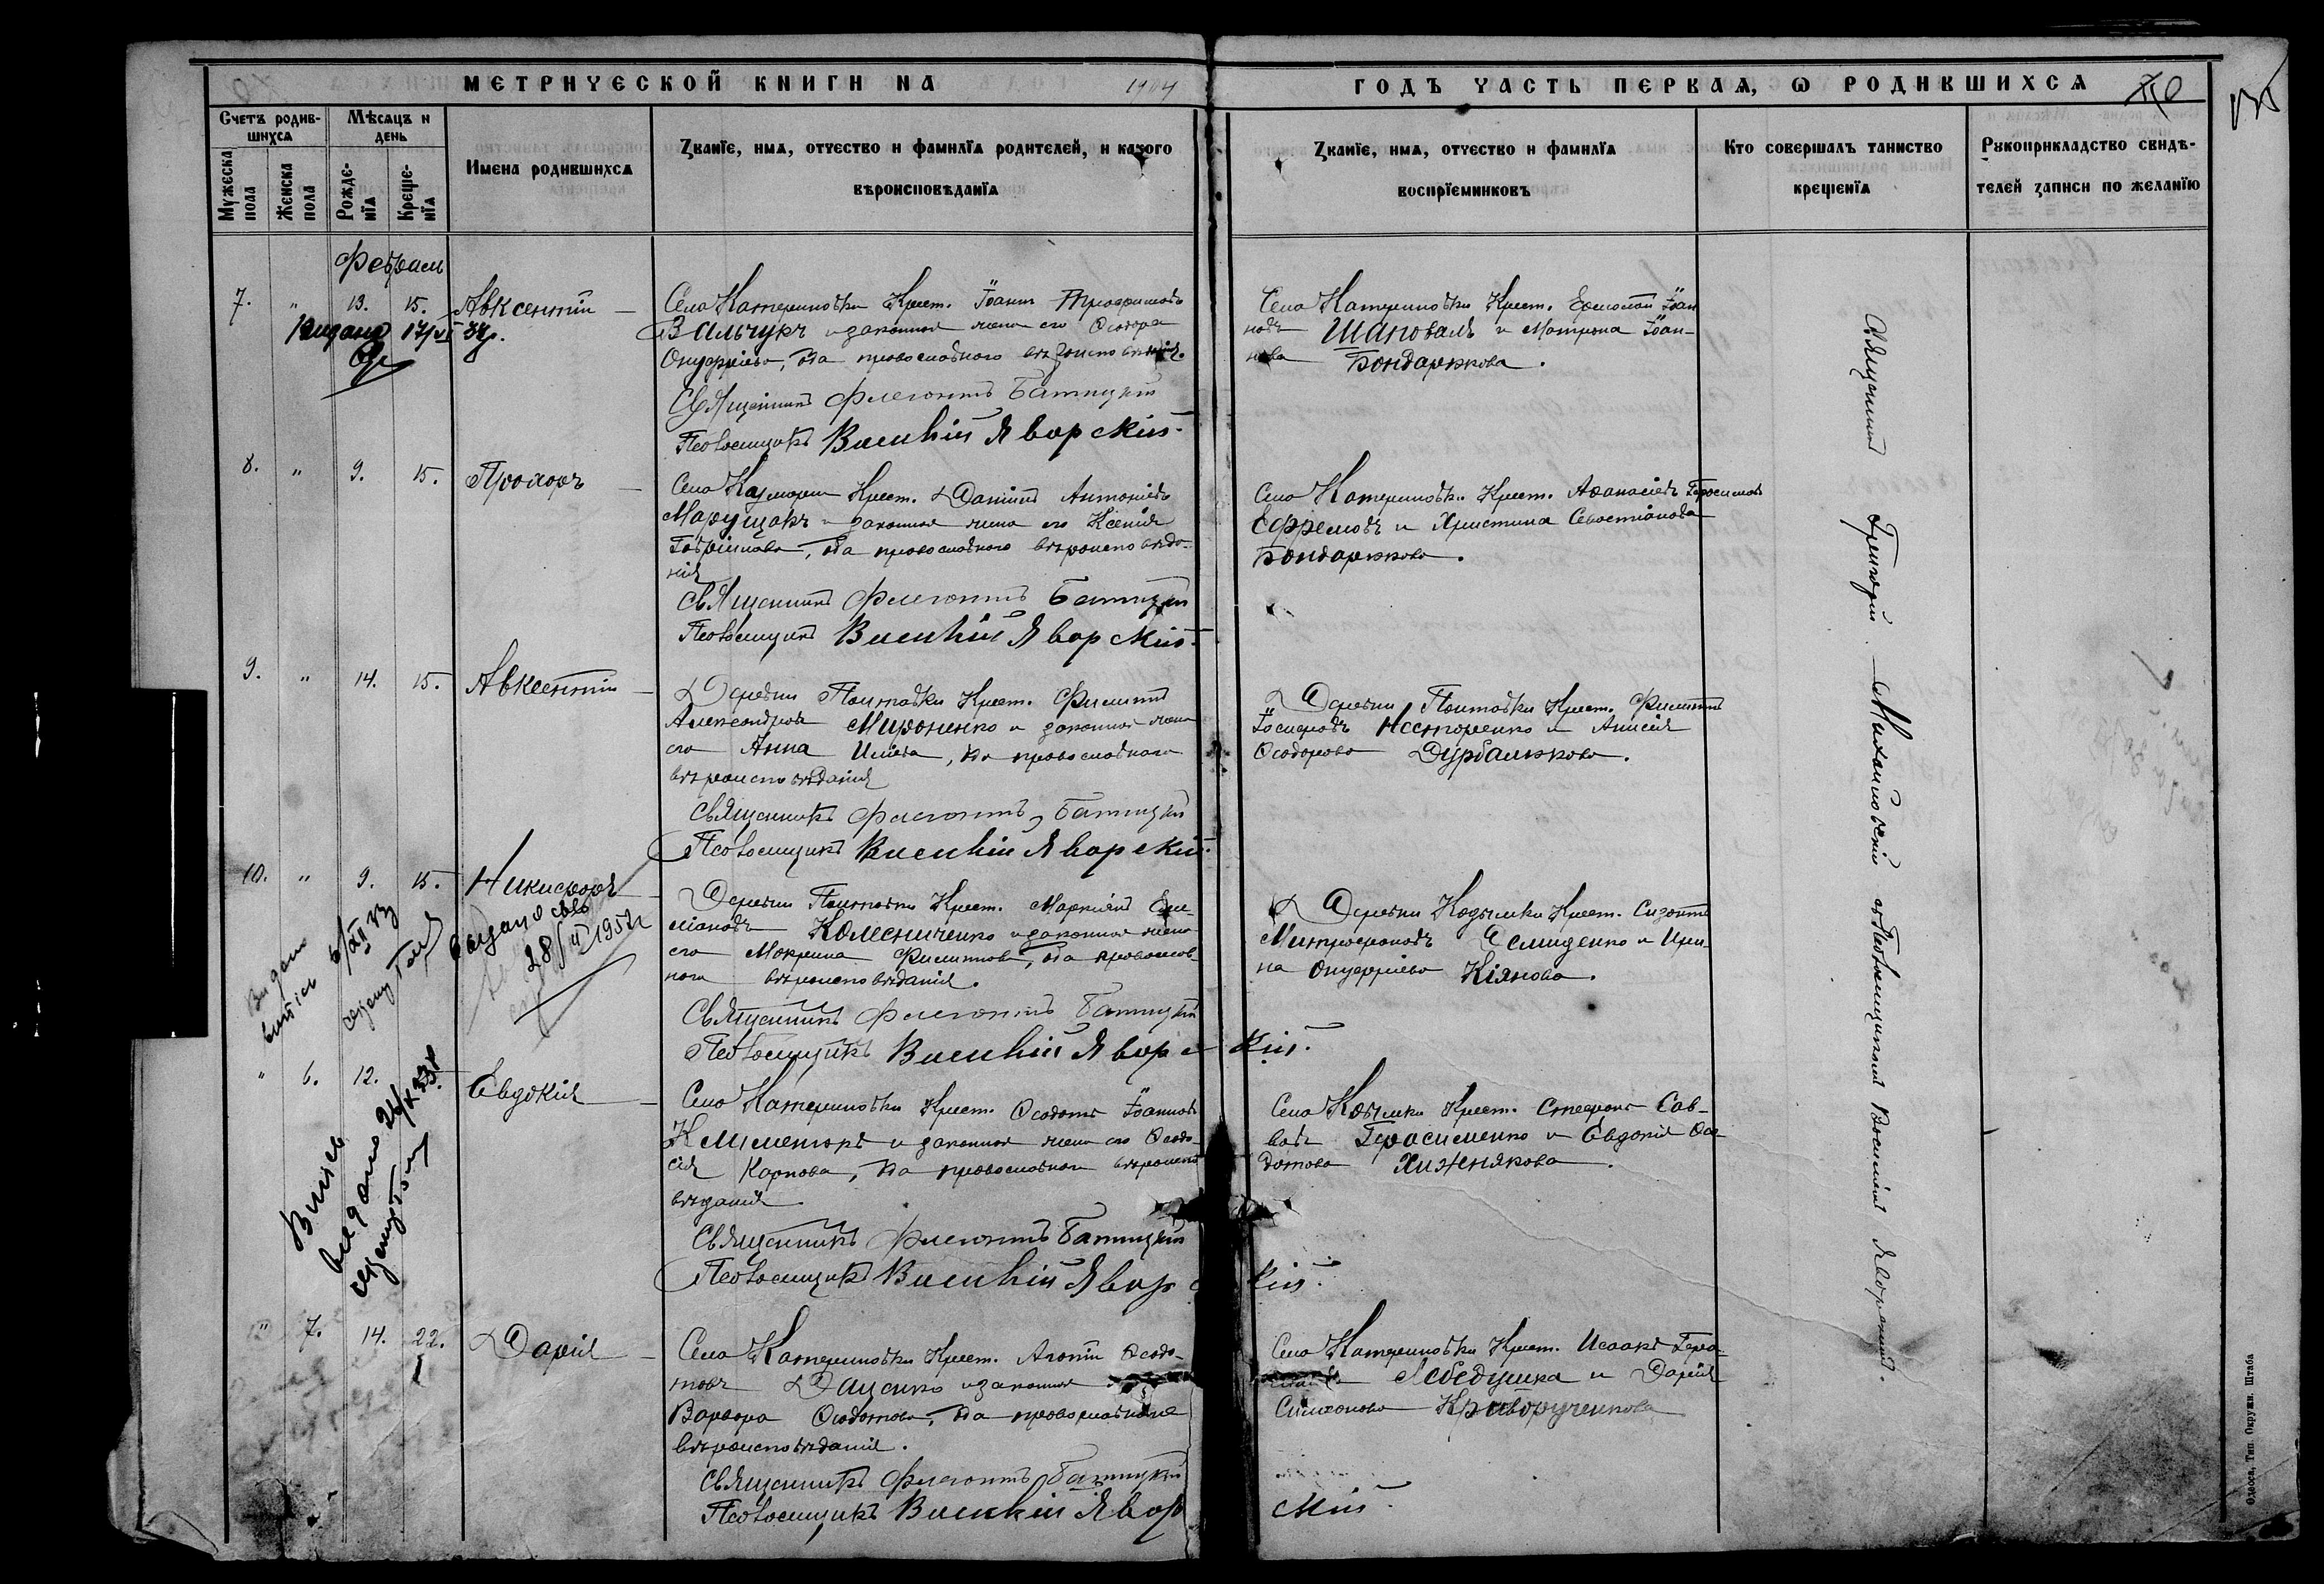 МЕТРИЧЕСКОЙ КНИГИ НА 1904 ГОДЪ ЧАСТЬ ПЕРВАЯ, Ѡ РОДИВШИХСЯ
Счетъ родившихся
Мѣсяцъ и день
Мужеска пола
Женска пола
Рожденїя
Крещенїя
Имена родившихся
Званїе, имя, отчество и фамилїя родителей, и какого вѣроисповѣданїя
Званїе, имя, отчество и фамилїя воспрїемниковъ
Кто совершалъ таинство крещенїя
Рукоприкладство свидѣтелей записи по желанїю
Февраль
7. " 13. 15. Авксентій
Видана 17/VI 37р.
Села Катериновки Крест. Іоаннъ Трофимовъ
Вальчукъ и законная жена его Ѳеодора
Онуфріева, оба православного вѣроисповѣданія.
Священникъ Флегонтъ Батицкій
Псаломщикъ Василій Яворскій
Села Катериновки Крест. Ермолай Іоан
новъ Шаповалъ и Матрона Іоан-
нова Бондарюкова.
8. " 9. 15. Прохоръ
Села Казморки Крест. Даніилъ Антоніевъ
Марущакъ и законная жена его Ксенія
Гавріилова, оба православного вѣроисповѣда-
нія
Священникъ Флегонтъ Батицкій
Псаломщикъ Василій Яворскій
Села Катериновки Крест. Аѳанасій Герасимовъ
Ефремовъ и Христина Севастіанова
Бондарюкова.
9. " 14. 15. Авксентій
Деревни Полтавки Крест. Филиппъ
Александровъ Мироненко и законная жена
его Анна Иліева, оба православного
вѣроисповѣданія
Священникъ Флегонтъ Батицкій
Псаломщикъ Василій Яворскій
Деревни Полтавки Крест. Филиппъ
Іосифовъ Несторенко и Анисія
Ѳеодорова Дурбалюкова.
10. " 9. 15. Никифоръ
видано свед
28/VI 1952
Видано
витяг
Деревни Полтавки Крест. Маркіянъ Еми-
ліановъ Колесниченко и законная жена
его Мокрина Филиппова, оба православ-
ного вѣроисповѣданія.
Священникъ Флегонтъ Батицкій
Псаломщикъ Василій Яворскій
Деревни Кодымки Крест. Сизонтъ
Митрофановъ Демиденко и Ири-
на Онуфріева Кіянова.
" 6. 12. Евдокія
Села Катериновки Крест. Ѳеодотъ Іоанновъ
Климетюкъ и законная жена его Ѳеодо-
сія Карпова, оба православного вѣроиспо
вѣданія
Священникъ Флегонтъ Батицкій
Псаломщикъ Василій Яворскій
Села Кодымки Крест. Стефанъ Сав-
ватъ Герасименко и Евдокія Ѳео-
дотова Хижнякова.
" 7. 14. 22. Дарія
Села Катериновки Крест. Агапій Ѳеодо-
товъ Даценко и законная
Варвара Ѳеодотова, оба православного
вѣроисповѣданія.
Священникъ Флегонтъ Батицкій
Псаломщикъ Василій Яворскій
Села Катериновки Крест. Исаакъ Гера-
Лебедушка и Дарія
Симеонова Криворученкова
Священникъ Григорій Михайловскій съ Псаломщикомъ Василіемъ Яворскимъ.
Одесса, Тип. Окружн. Штаба